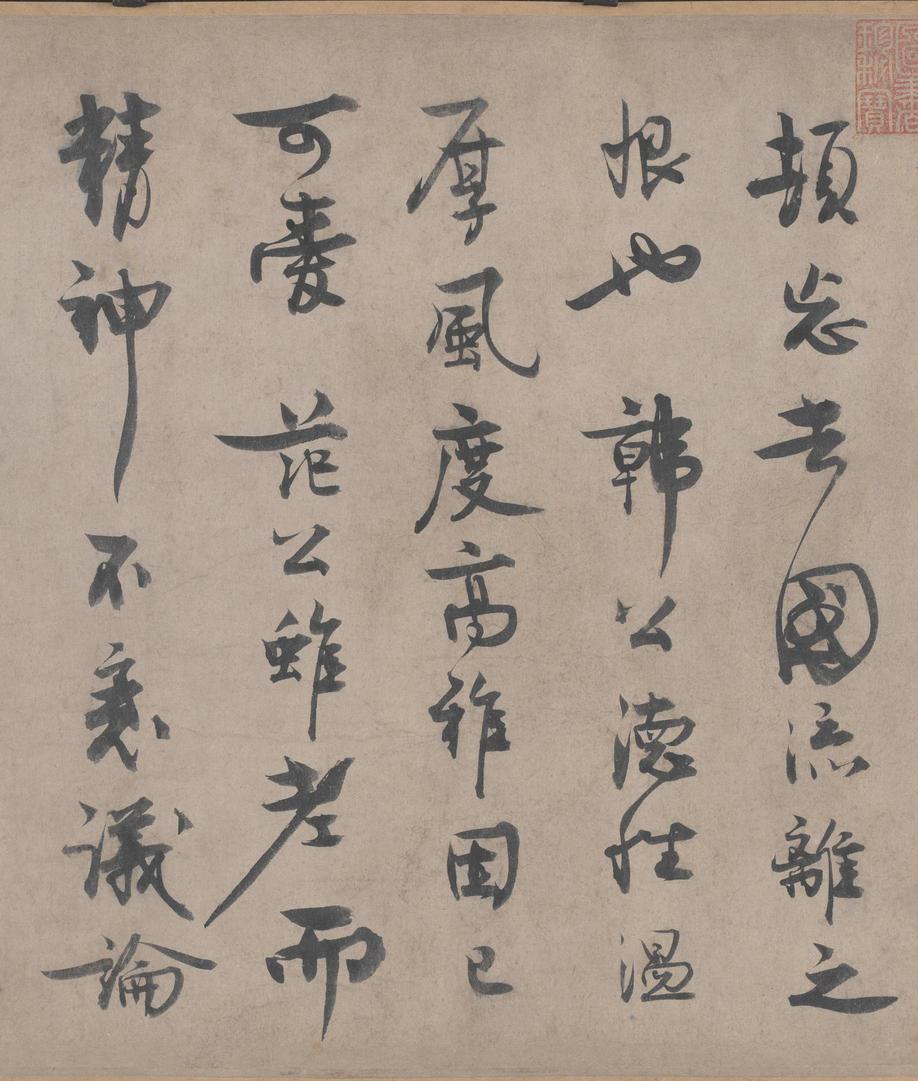 頓忘去國流離之
恨也韓公德性温
厚風度高雅固已
可愛范公雖老而
精神不衰議論